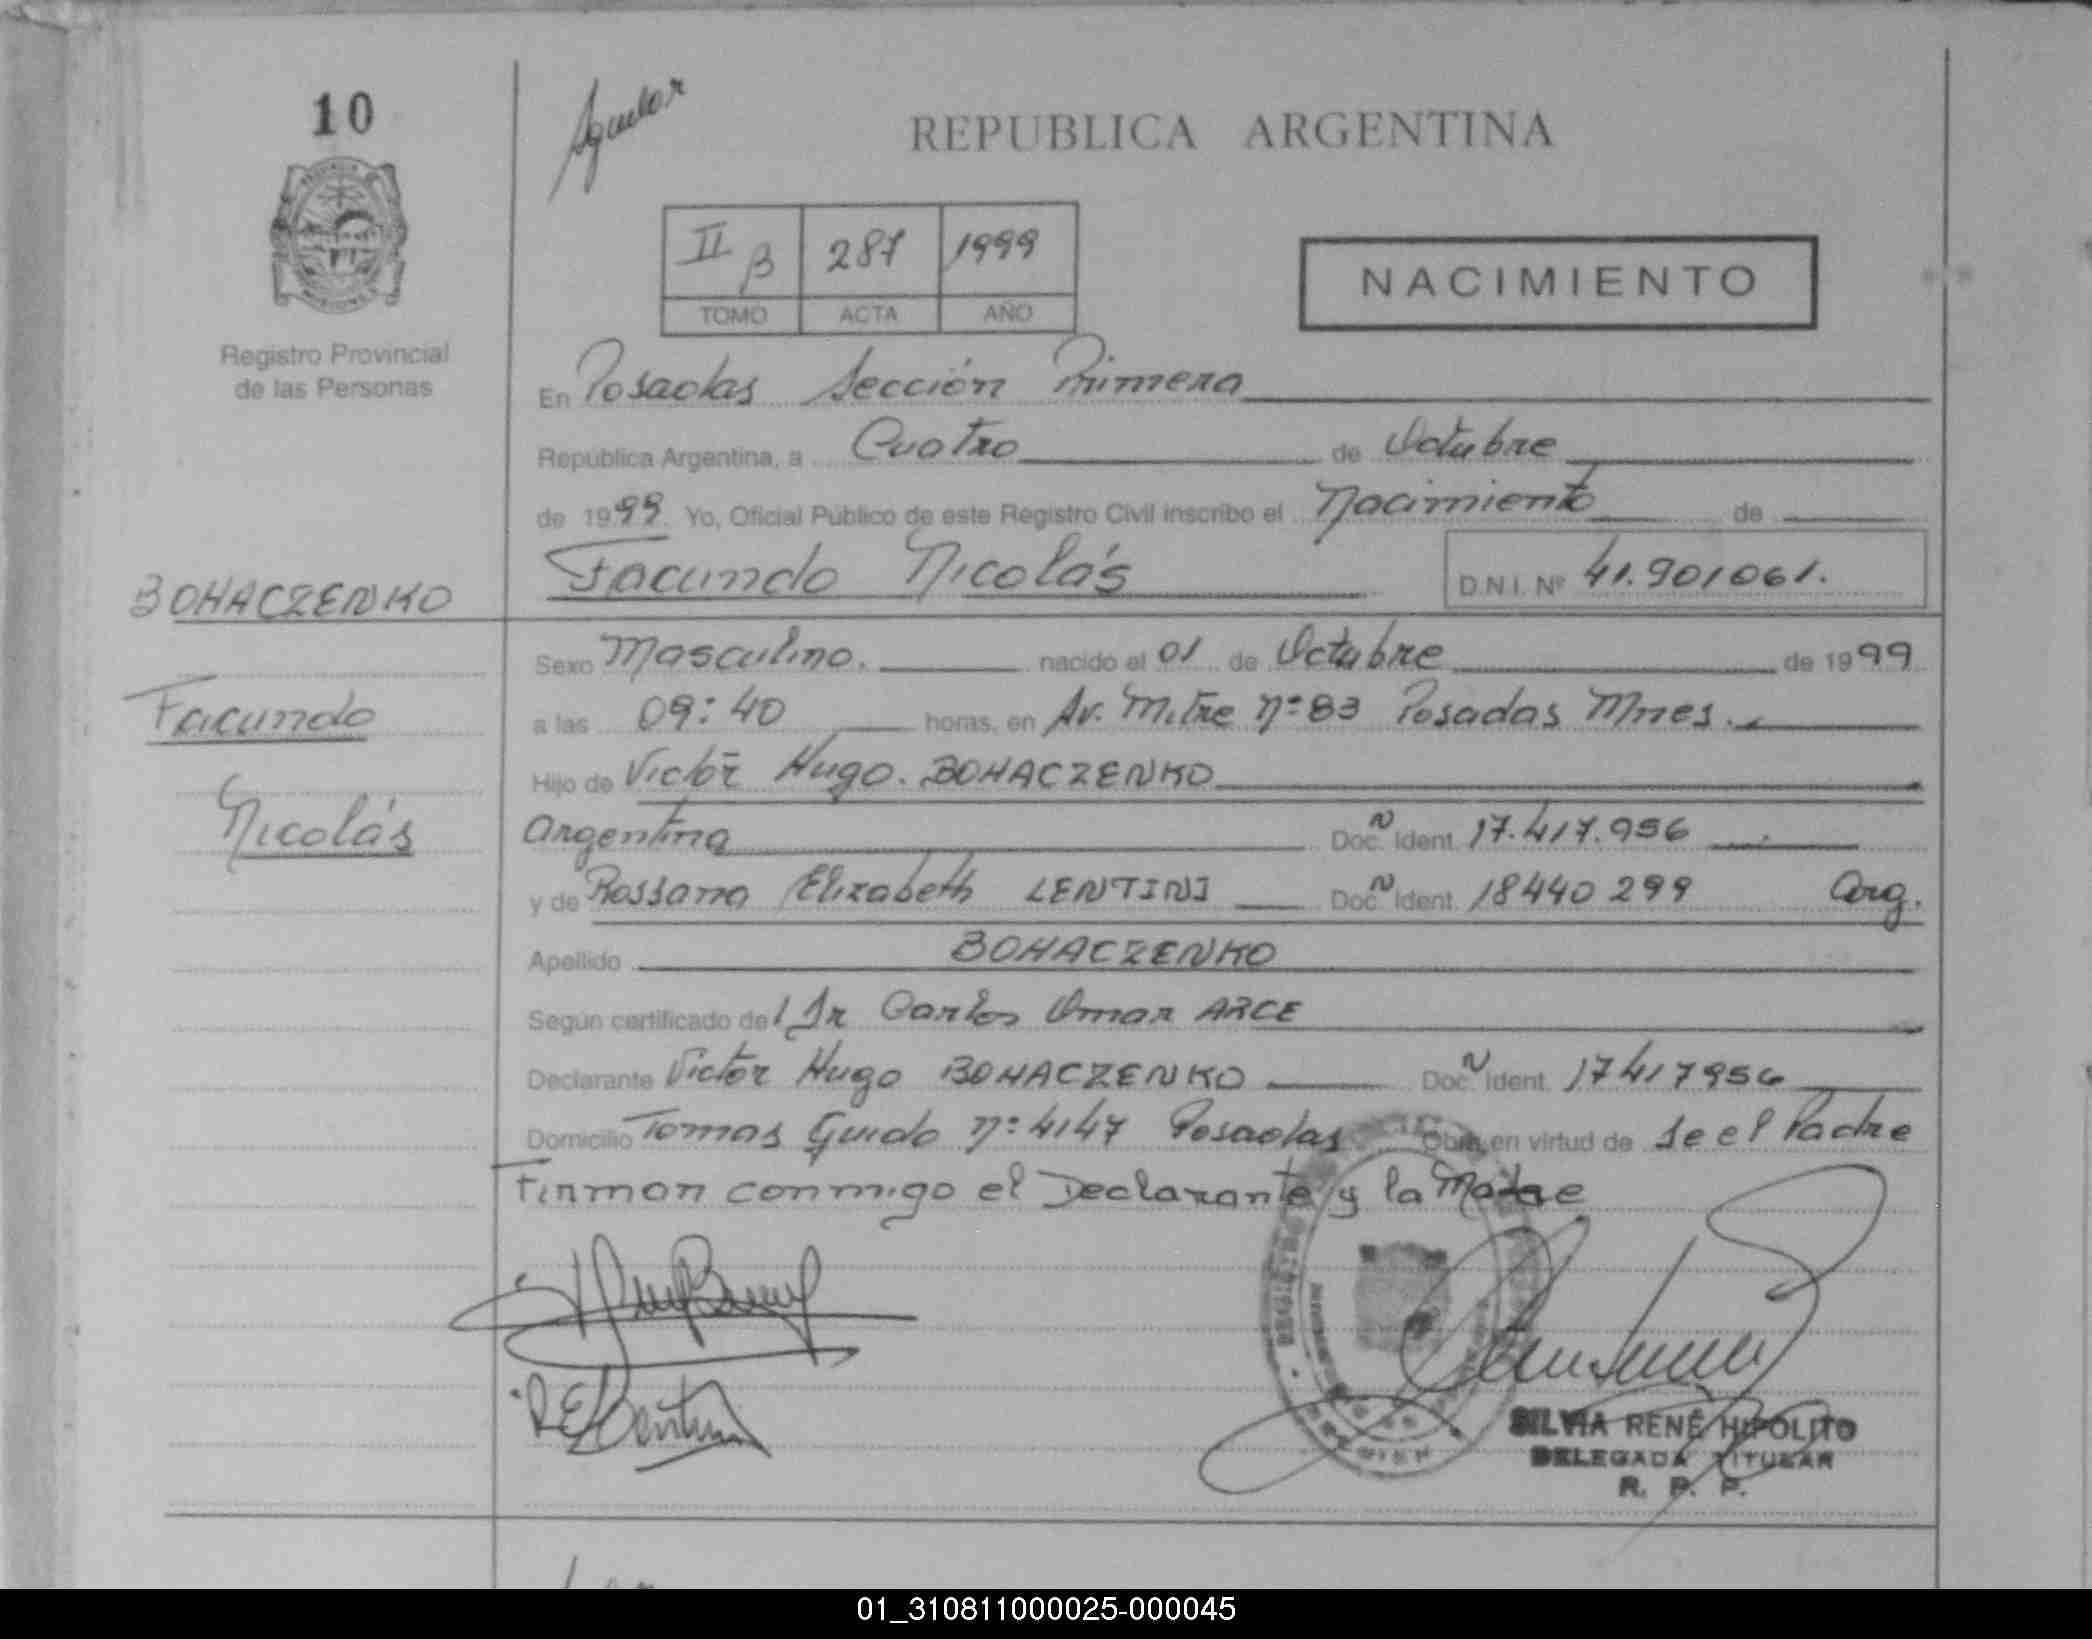 10
Aguilar
REPUBLICA ARGENTINA
II B 287 1999
TOMO ACTA AÑO
NACIMIENTO
Registro Provincial
de las Personas
En Posadas Sección Primera
República Argentina, a Cuatro de Octubre
de 1999 Yo, Oficial Público de este Registro Civil inscribo el Nacimiento de
Facundo Nicolás D.N.I. Nº 41.901061.
BOHACZENKO
Facundo
Nicolás
Sexo Masculino. nacido el 01 de Octubre de 1999
a las 09:40 horas, en Av. Mitre nº 83 Posadas Mnes.
Hijo de Victor Hugo. BOHACZENKO
Argentina Doc. Ident. 17.417.956
y de Rossana Elizabeth LENTINI Doc. Ident. 18440299 Arg.
Apellido BOHACZENKO
Según certificado del Dr Carlos Omar ARCE
Declarante Victor Hugo BOHACZENKO Doc. Ident. 17417956
Domicilio Tomas Guido nº 4147 Posadas Obra en virtud de se el Padre
Firman conmigo el Declarante y la Madre
SILVIA RENÉ HIPOLITO
DELEGADA TITULAR
R. P. P.
01_310811000025-000045